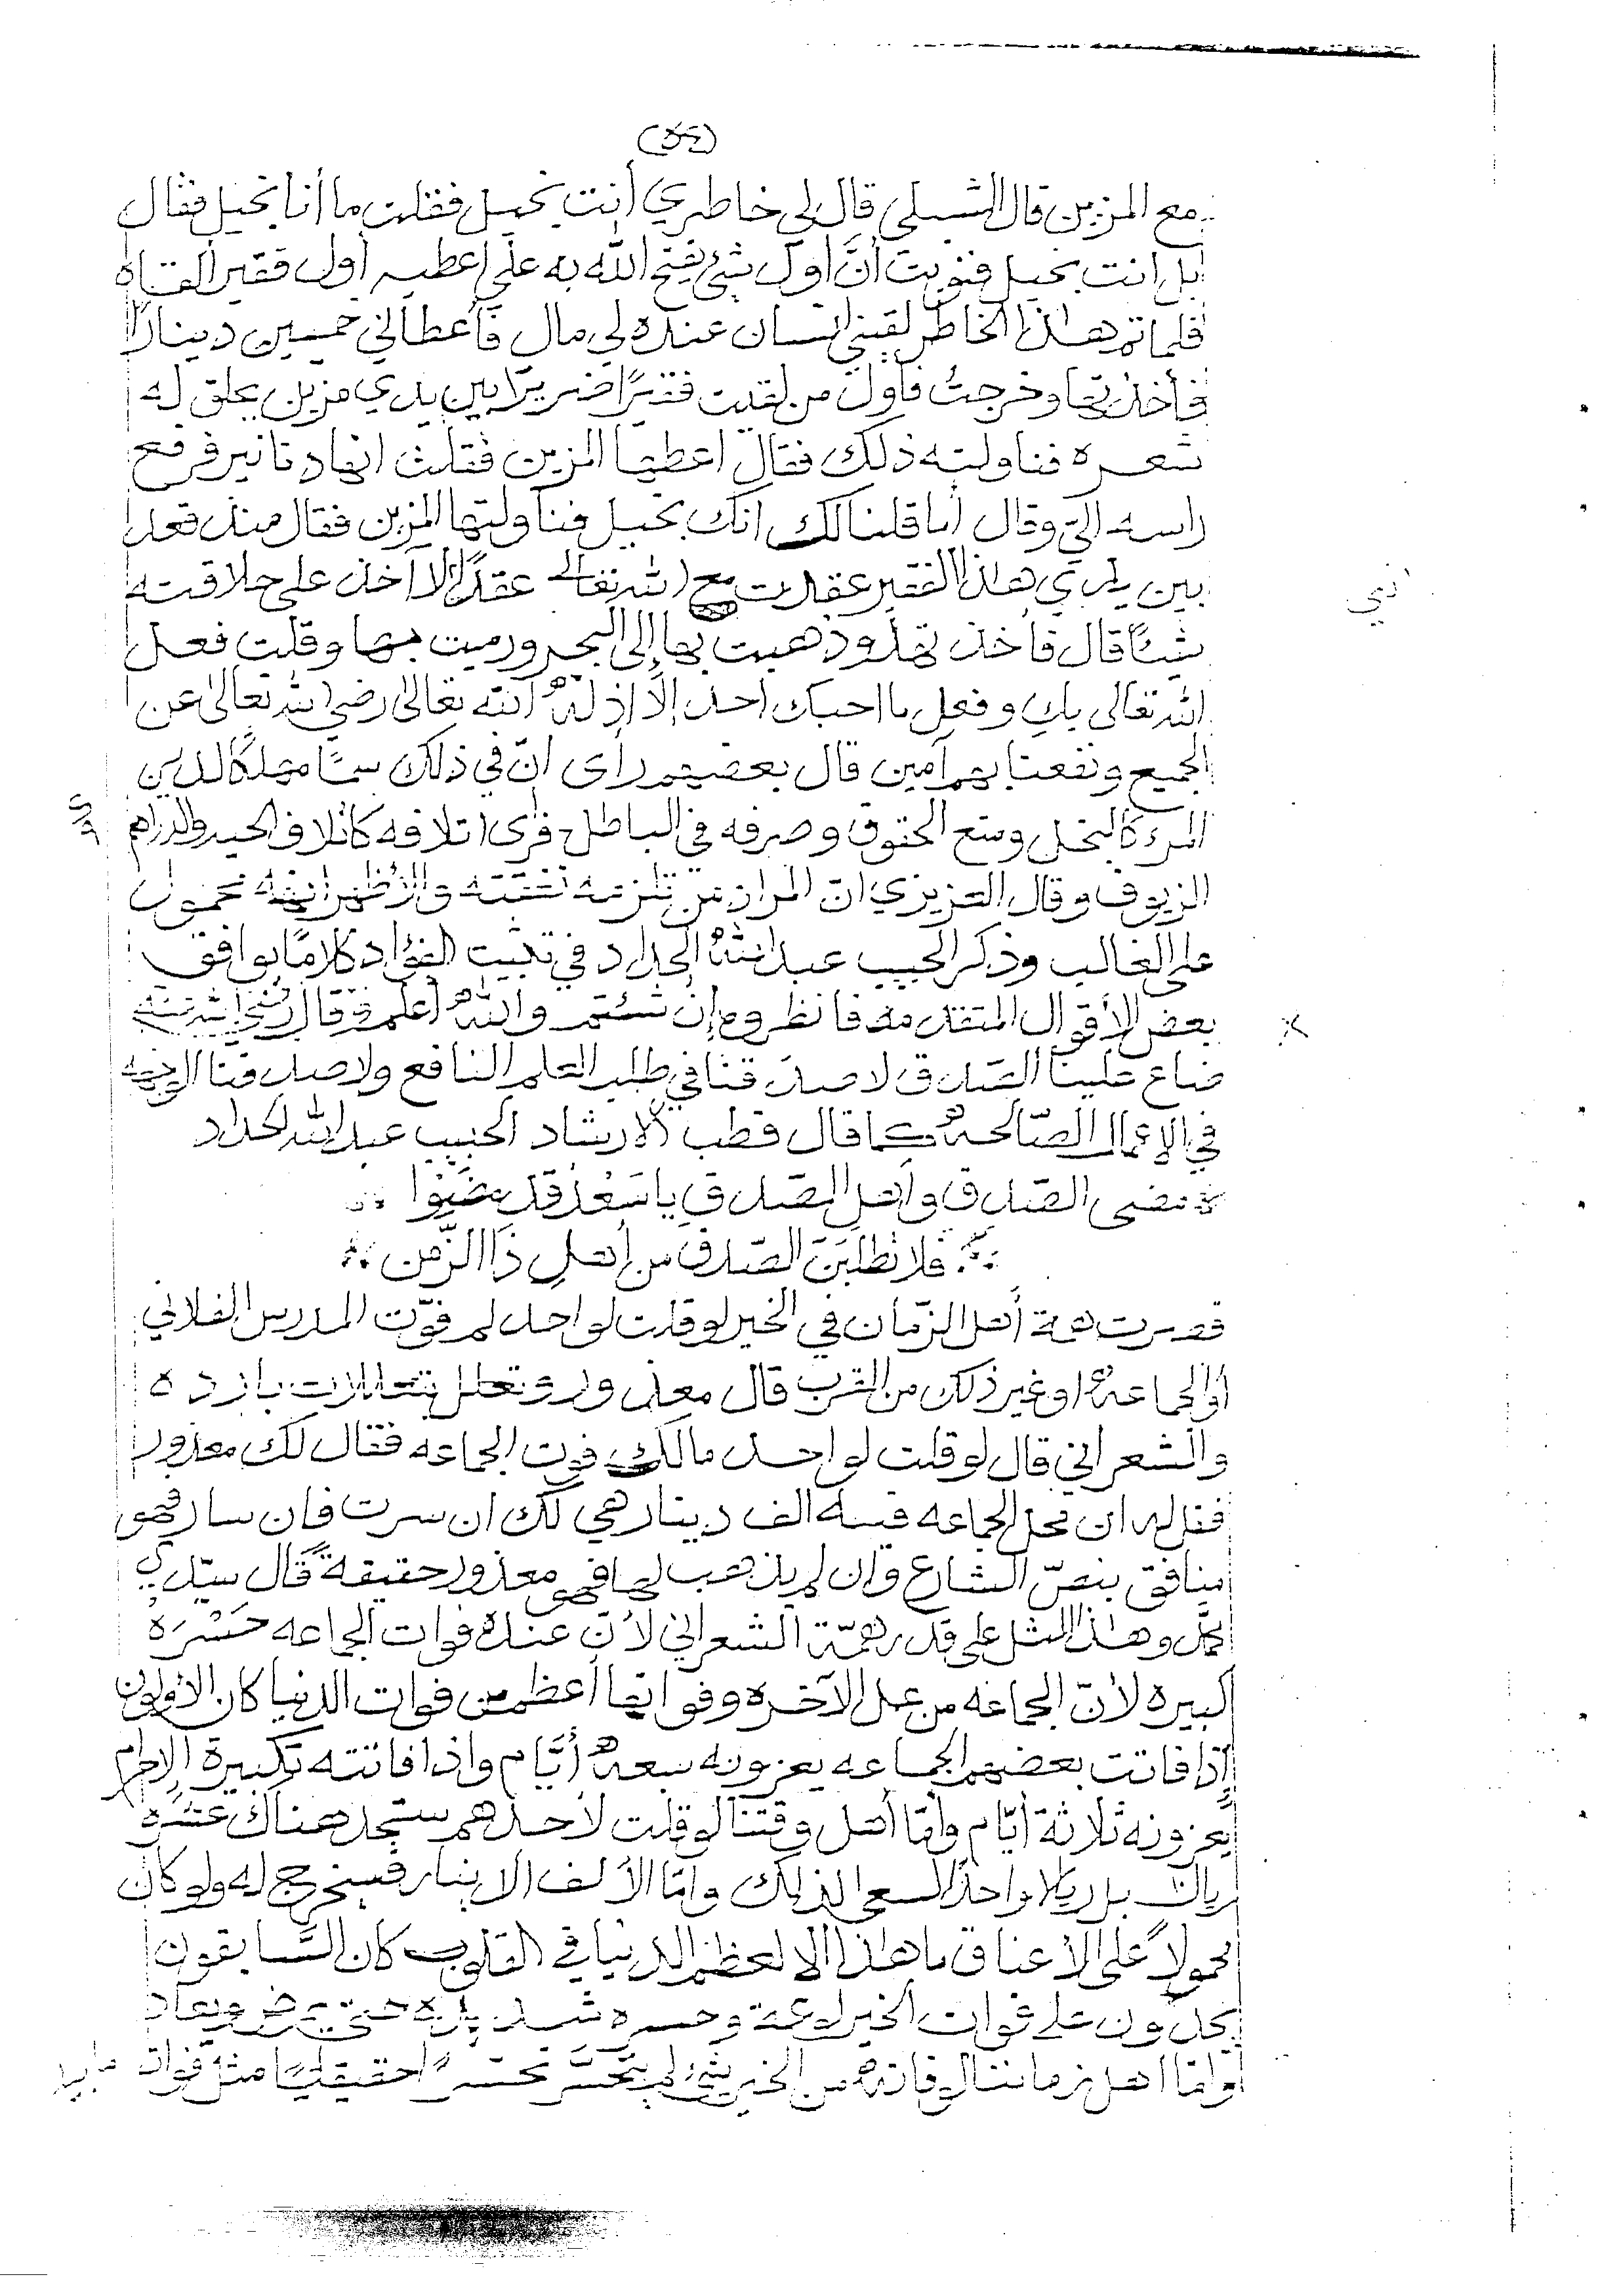 مع المزين قال الشبلي قال لي خاطري أنت بخيل فقلت ما أنا بخيل فقال
بل انت بخيل فنويت أنَّ اول شئ يفتح الله به علي اعطيه أول فقير ألقاه
فلما تم هذا الخاطر لقيني انسان عنده لي مال فأعطاني خمسين دينارًا
فأخذتها وخرجتُ فأول من لقيت فقيرًا ضريرًا بين يدي مزين يحلق له
شعره فناولته ذلك فقال اعطها المزين فقلت انها دنانير فرفع
راسه اليّ وقال أما قلنا لك انك بخيل فناولتها المزين فقال منذ قعد
بين يدي هذا الفقير عقدت مع الله تعالى عقدًا ألا آخذ على حلاقته
شيئًا قال فأخذتها وذهبت بها إلى البحر ورميت بها وقلت فعل
الله تعالى بكِ وفعل ما احبك احد إلا اذله الله تعالى رضي الله تعالى عن
الجميع ونفعنا بهم آمين قال بعضهم رأى انّ في ذلك سمًا مهلكًا لدين
المرء كالبخل ومنع الحقوق وصرفه في الباطل فرأى اتلافه كاتلاف الحيه والدراهم
الزيوف وقال العزيزي ان المراد من تلزمه نفقته والأظهر انه محمول
على الغالب وذكر الحبيب عبد الله الحداد في تثبيت الفؤاد كلامًا يوافق
بعض الأقوال المتقدمه فانظروه إن شئتم والله أعلم وقال رضي الله عنه
ضاع علينا الصدق لا صدقنا في طلب العلم النافع ولا صدقنا
في الاعمال الصّالحة كما قال قطب الارشاد الحبيب عبد الله الحداد
مضى الصّدق وأهل الصّدق يا سَعْد قد مضَوْا
فلا تطلبَنَّ الصّدق من أهلِ ذا الزّمن
قصرت همة أهل الزّمان في الخير لو قلت لواحد لم فوّت المدرس الفلاني
أو الجماعة او غير ذلك من القرب قال معذور وتعلل بتعللات بارده
والشعراني قال لو قلت لواحد مالك فوت الجماعه فقال لك معذور
فقل له ان محل الجماعه فيه الف دينار هي لك ان سرت فان سار فهو
منافق بنصّ الشارع وان لم يذهب لها فهو معذور حقيقةً قال سيّدي
محمّد وهذا المثل على قدر همّة الشعراني لأن عنده فوات الجماعه حَسْرَه
كبيره لأنّ الجماعه من عمل الآخره وفواتها أعظم من فوات الدنيا كان الأولون
إذا فاتت بعضهم الجماعه يعزونه سبعة أيَّام واذا فاتته تكبيرة الإحرام
يعزونه ثلاثة أيّام وأمّا أهل وقتنا لو قلت لأحدهم ستجد هناك عشره
ريال بل ريالا واحدًا لسعى لذلك وامّا الألف الدينار فسيخرج له ولو كان
محمولاً على الأعناق ما هذا الا لعظم الدنيا في القلوب كان السَّابقون
يجدون على فوات الخير لوعة وحسره شديده حتى يمرض ويعاد
وامّا اهل زماننا لو فاته من الخير شئ لم يتحسَّر تحسّرًا حقيقيًا مثل فوات